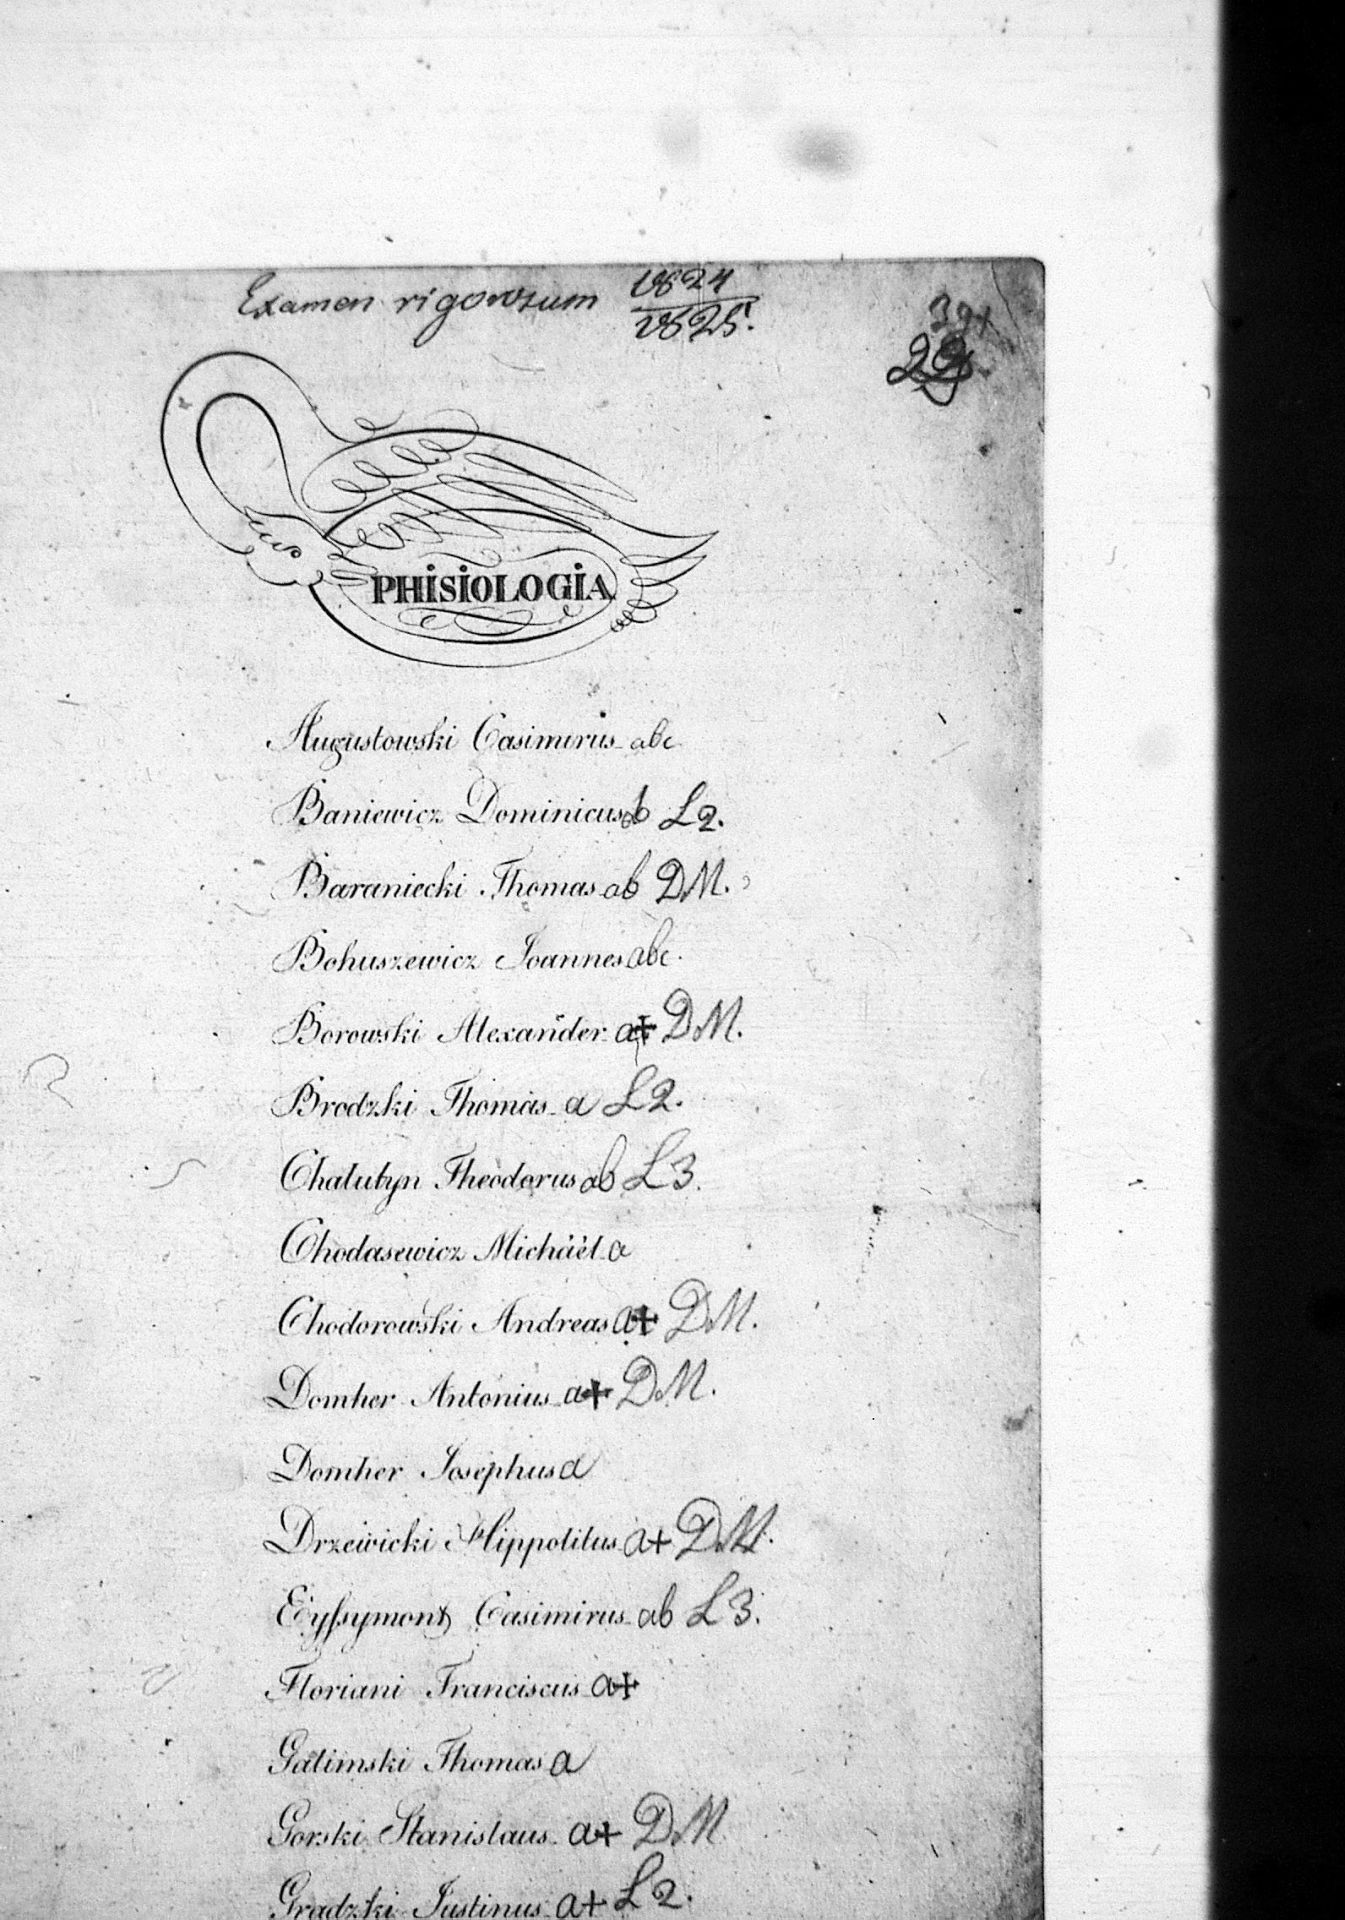 Examen rigorosum 1824
1825.
391
PHiSiOLOGiA
Augustowski Casimirus abc
Baniewicz Dominicus ab L2.
Baraniecki Thomas ab DM.
Bohuszewicz Joannes abc.
Borowski Alexander a+ DM.
Brodzki Thomas a L2.
Chalutyn Theodorus ab L3.
Chodasewicz Michäel a
Chodorowski Andreas a+ DM.
Domher Antonius a+ DM.
Domher Josephus a
Drzewicki Hippolitus a+ DM.
Eyssymont Casimirus ab L3.
Floriani Franciscus a+
Galimski Thomas a
Gorski Stanislaus a+ DM
Gradzki Justinus a+ L2.